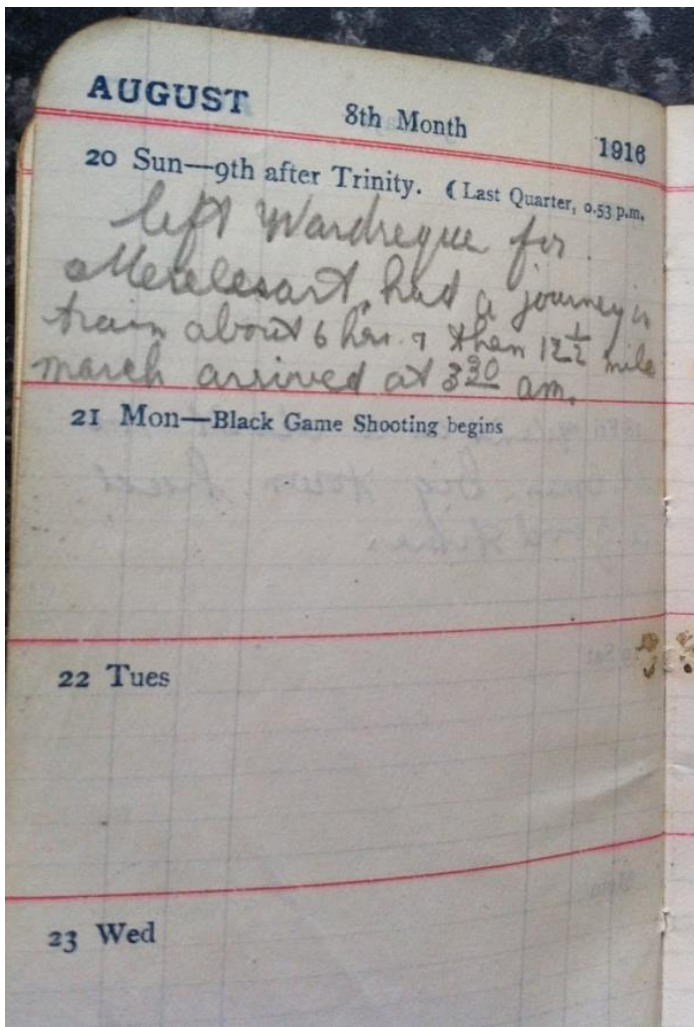 AUGUST 8th Month 1916
20 Sun—9th after Trinity. ( Last Quarter, 0.53 p.m.
left Wardreque for
Merelesart, had a journey in
train about 6 hrs. & then 12½ mile
march arrived at 3 30 am.
21 Mon—Black Game Shooting begins
22 Tues
23 Wed